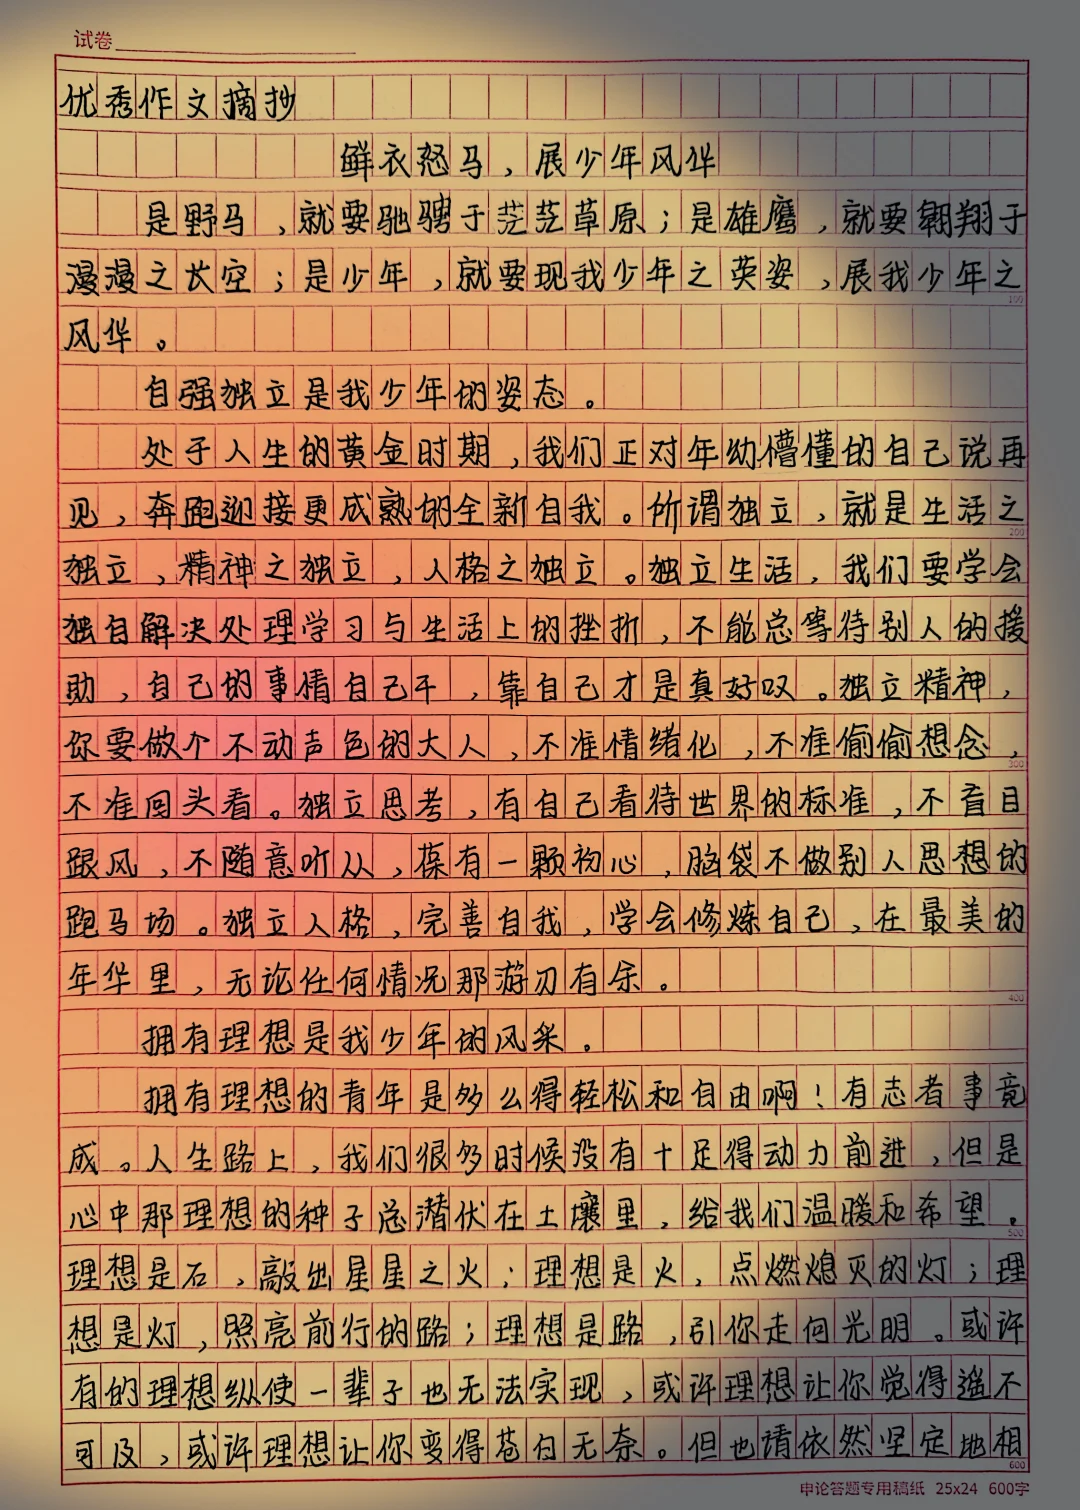 试卷
优秀作文摘抄
鲜衣怒马，展少年风华
是野马，就要驰骋于茫茫草原；是雄鹰，就要翱翔于
漫漫之长空；是少年，就要现我少年之英姿，展我少年之
100
风华。
自强独立是我少年的姿态。
处于人生的黄金时期，我们正对年幼懵懂的自己说再
见，奔跑迎接更成熟的全新自我。所谓独立，就是生活之
200
独立，精神之独立，人格之独立。独立生活，我们要学会
独自解决处理学习与生活上的挫折，不能总等待别人的援
助，自己的事情自己干，靠自己才是真好叹。独立精神，
你要做个不动声色的大人，不准情绪化，不准偷偷想念，
300
不准回头看。独立思考，有自己看待世界的标准，不盲目
跟风，不随意听从，葆有一颗初心，脑袋不做别人思想的
跑马场。独立人格，完善自我，学会修炼自己，在最美的
年华里，无论任何情况那游刃有余。
400
拥有理想是我少年的风采。
拥有理想的青年是多么得轻松和自由啊！有志者事竟
成。人生路上，我们很多时候没有十足得动力前进，但是
心中那理想的种子总潜伏在土壤里，给我们温暖和希望。
500
理想是石，敲出星星之火；理想是火，点燃熄灭的灯；理
想是灯，照亮前行的路；理想是路，引你走向光明。或许
有的理想纵使一辈子也无法实现，或许理想让你觉得遥不
可及，或许理想让你变得苍白无奈。但也请依然坚定地相
600
申论答题专用稿纸 25x24 600字